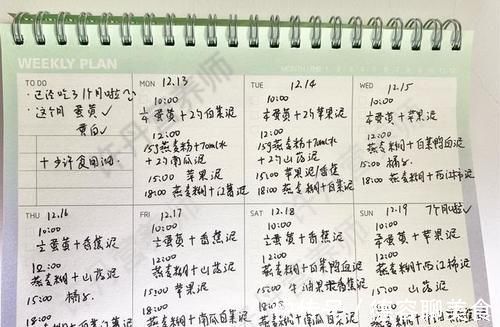 WEEKLY PLAN
TO DO
·已经吃了1个月啦
·这个月 蛋黄✓
蛋白✓
十少许食用油。
MON 12.13
10:00
蛋黄+2勺白菜泥
12:00
15g燕麦粉+70ml水
+2勺南瓜泥
15:00 苹果泥
18:00 燕麦糊+
TUE 12.14
10:00
蛋黄+2勺苹果泥
12:00
15g燕麦粉+70ml水
+2勺山药泥
15:00 苹果泥/香蕉
18:00 燕麦糊+白菜泥
WED 12.15
10:00
蛋黄+苹果泥
12:00
燕麦糊+白菜鸭血泥
15:00 橘
18:00 燕麦糊+西红柿泥
THU 12.16
10:00
蛋黄+香蕉泥
12:00
燕麦糊+山药泥
15:00 橘
18:00 燕麦糊+南瓜泥
FRI 12.17
10:00
蛋黄+香蕉泥
12:00
燕麦糊+山药泥
15:00 苹果泥
18:00 燕麦糊+南瓜白菜泥
SAT 12.18
10:00
蛋黄+香蕉泥
12:00
燕麦糊+白菜鸭血泥
15:00 牛油果香蕉泥
18:00 燕麦糊+南瓜白菜泥
SUN 12.19 7个月啦✓
10:00
蛋黄+苹果泥
12:00
燕麦糊+西红柿泥
15:00
18:00 燕麦糊+白菜泥
悟空聊美食